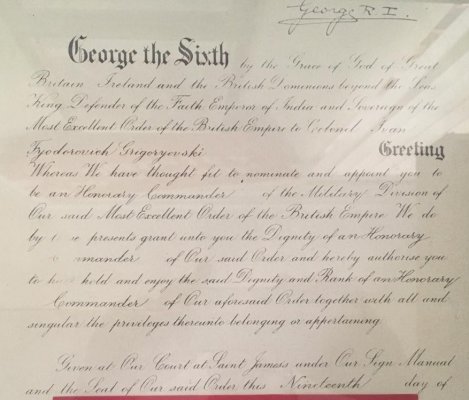 George R. I.
George the Sixth by the Grace of God of Great
Britain Ireland and the British Dominions beyond the Seas
King, Defender of the Faith Emperor of India and Sovereign of the
Most Excellent Order of the British Empire to Colonel Ivan
Fyodorovich Grigoryevski Greeting
Whereas We have thought fit to nominate and appoint you to
be an Honorary Commander of the Military Division of
Our said Most Excellent Order of the British Empire We do
by presents grant unto you the Dignity of an Honorary
mmander of Our said Order and hereby authorise you
to hold and enjoy the said Dignity and Rank of an Honorary
Commander of Our aforesaid Order together with all and
singular the privileges thereunto belonging or appertaining.
Given at Our Court at Saint James's under Our Sign Manual
and the Seal of Our said Order this Nineteenth day of